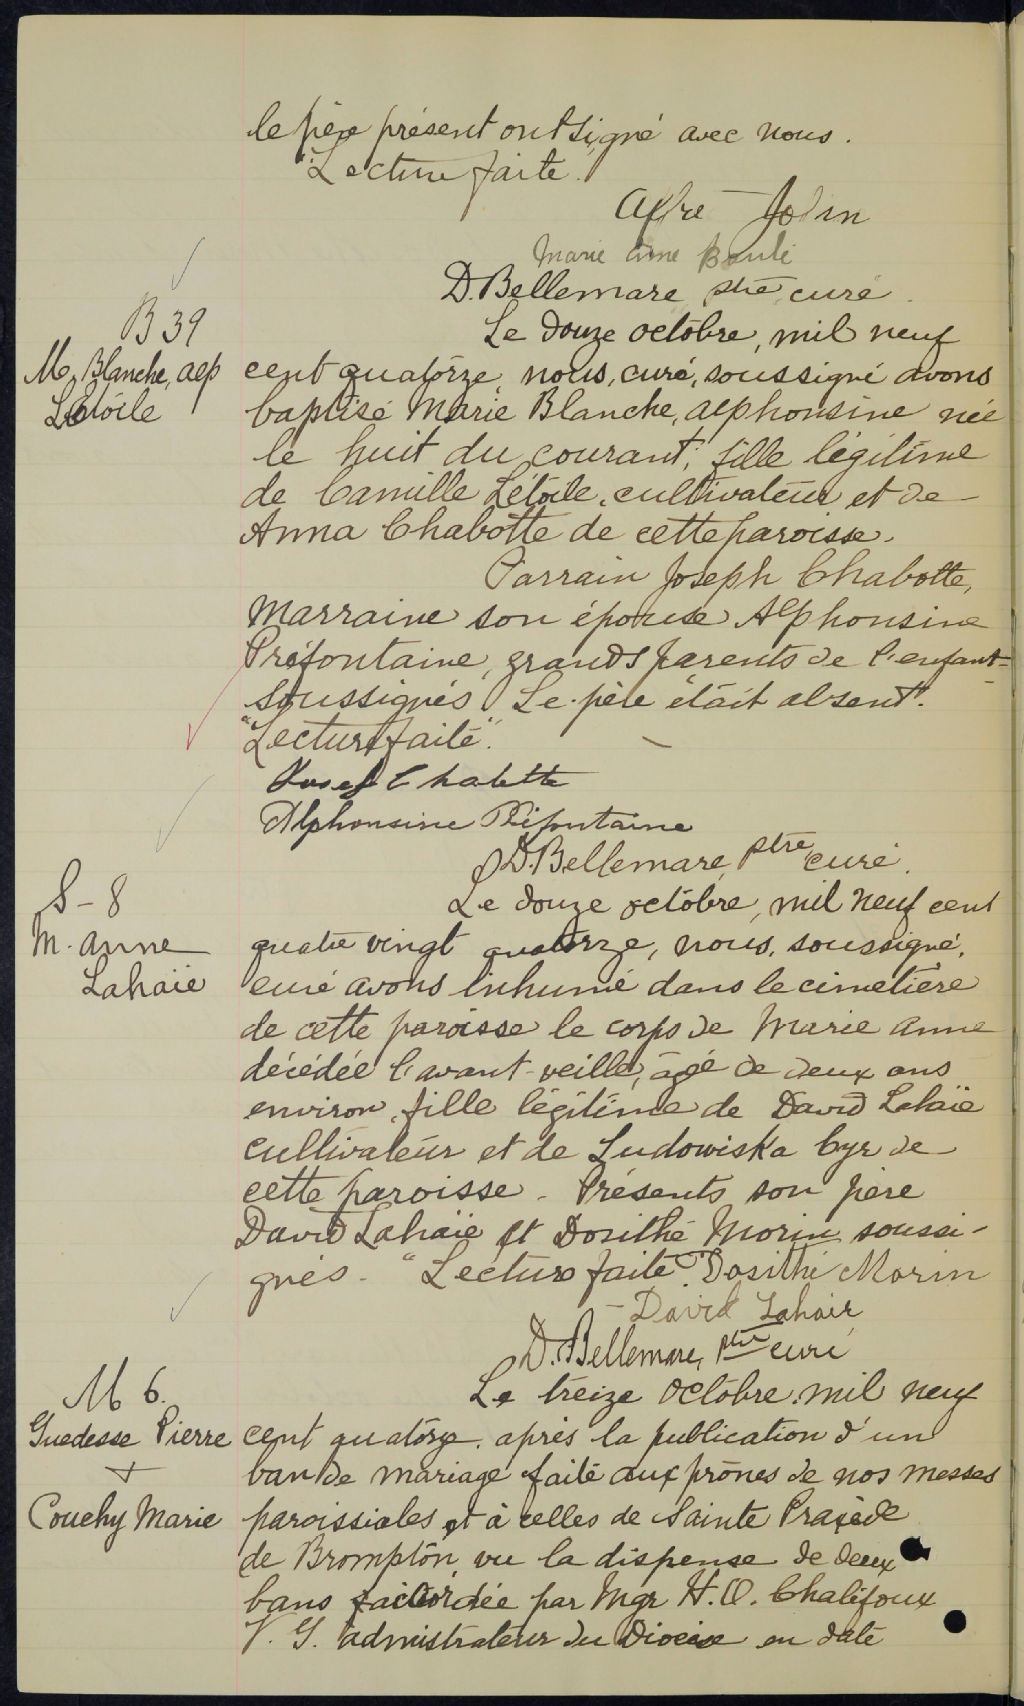 le père présent ont signé avec nous.
"Lecture faite."
Marie Anne
D. Bellemare ptre curé.
B 39
M. Blanche, alp
Létoile
Le douze octobre, mil neuf
cent quatorze, nous, curé, soussigné avons
baptisé Marie Blanche, alphonsine née
le huit du courant, fille légitime
de Camille Létoile, cultivateur et de
Anna Chabotte de cette paroisse.
Parrain Joseph Chabotte,
Marraine son épouse Alphonsine
Préfontaine, grands parents de l'enfant
soussignés Le père était absent.
"Lecture faite".
Josef Chabotte
Alphonsine Préfontaine
D. Bellemare, ptre curé.
S-8
M. anne
Lahaïe
Le douze octobre, mil neuf cent
quatre vingt quatorze, nous, soussigné,
curé avons inhumé dans le cimetière
de cette paroisse le corps de Marie anne
décédée l'avant-veille, âgé de deux ans
environ, fille légitime de David Lahaïe
cultivateur et de Ludowiska Cyr de
cette paroisse. Présents son père
David Lahaïe et Dosithé Morin soussi-
gnés. "Lecture faite". Dosithé Morin
- David Lahair
D. Bellemare, ptre curé
M 6.
Guedesse Pierre
+
Couchy Marie
Le treize octobre, mil neuf
cent quatorze, après la publication d'un
ban de mariage faite aux prônes de nos messes
paroissiales et à celles de Sainte Praxède
de Brompton, vu la dispense de deux
bans accordée par Mgr H.O. Chalifoux
V. G. admistrateur du Diocèse en date